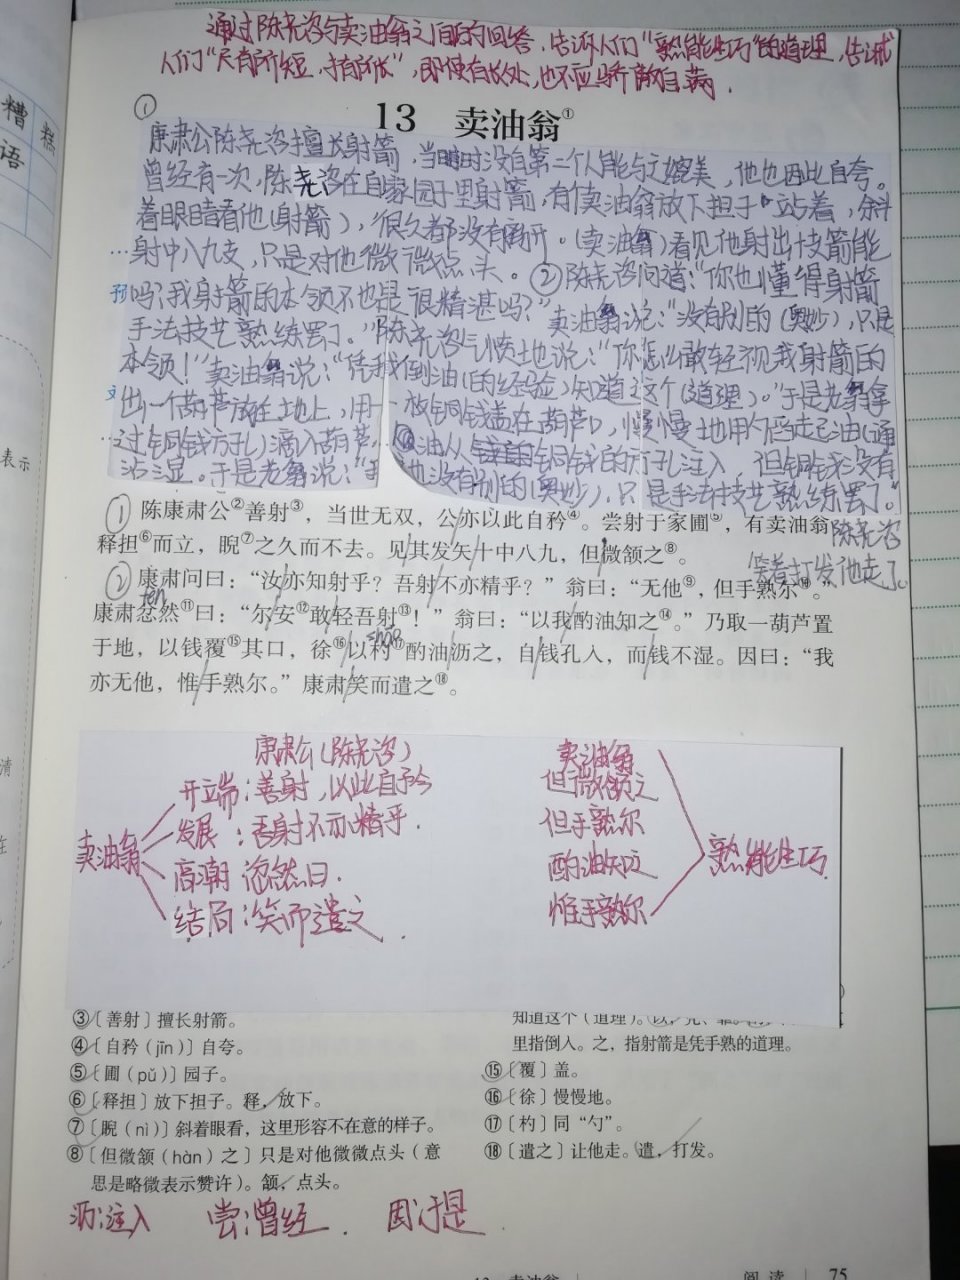 通过陈尧咨与卖油翁之间的回答,告诉人们“熟能生巧”的道理,告诫
人们“尺有所短,寸有所长”,即使有长处,也不应骄傲自满.
糟糕
语
13 卖油翁①
①
康肃公陈尧咨擅长射箭,当时没有第二个人能与之媲美,他也因此自夸。
曾经有一次,陈尧咨在自家园子里射箭,有个卖油翁放下担子,站着,斜
着眼睛看他(射箭),很久都没有离开。(卖油翁)看见他射出十支箭能
射中八九支,只是对他微微点头。②陈尧咨问道:“你也懂得射箭
吗?我射箭的本领不也是很精湛吗?”卖油翁说:“没有别的(奥妙),只是
手法技艺熟练罢了。”陈尧咨气愤地说:“你怎么敢轻视我射箭的
本领!”卖油翁说:“凭我倒油(的经验)知道这个(道理)。”于是老翁拿
出一个葫芦放在土地上,用一枚铜钱盖在葫芦口,慢慢土地用勺舀起油(通
过铜钱方孔)滴入葫芦,油从铜钱的方孔注入,但铜钱没有
沾湿。于是老翁说:“我也没有别的(奥妙),只是手法技艺熟练罢了。”
陈尧咨
笑着打发他走了。
① 陈康肃公②善射③,当世无双,公亦以此自矜④。尝射于家圃⑤,有卖油翁
释担⑥而立,睨⑦之久而不去。见其发矢十中八九,但微颔之⑧。
② 康肃问曰:“汝亦知射乎?吾射不亦精乎?”翁曰:“无他⑨,但手熟尔⑩。”
康肃忿然⑪曰:“尔安⑫敢轻吾射⑬!”翁曰:“以我酌油知之⑭。”乃取一葫芦置
于地,以钱覆⑮其口,徐⑯以杓⑰酌油沥之,自钱孔入,而钱不湿。因曰:“我
亦无他,惟手熟尔。”康肃笑而遣之⑱。
表示
康肃公(陈尧咨)
开端:善射,以此自矜
发展:吾射不亦精乎.
卖油翁
高潮:忿然曰.
结局:笑而遣之.
卖油翁
但微颔之
但手熟尔
熟能生巧
酌油知之
惟手熟尔
③〔善射〕擅长射箭。
④〔自矜(jīn)〕自夸。
⑤〔圃(pǔ)〕园子。
⑥〔释担〕放下担子。释,放下。
⑦〔睨(nì)〕斜着眼看,这里形容不在意的样子。
⑧〔但微颔(hàn)之〕只是对他微微点头(意
思是略微表示赞许)。颔,点头。
知道这个(道理)。以,凭、靠。
里指倒入。之,指射箭是凭手熟的道理。
⑮〔覆〕盖。
⑯〔徐〕慢慢地。
⑰〔杓〕同“勺”。
⑱〔遣之〕让他走。遣,打发。
沥:注入 尝:曾经. 因:于是.
13 卖油翁 阅读 75